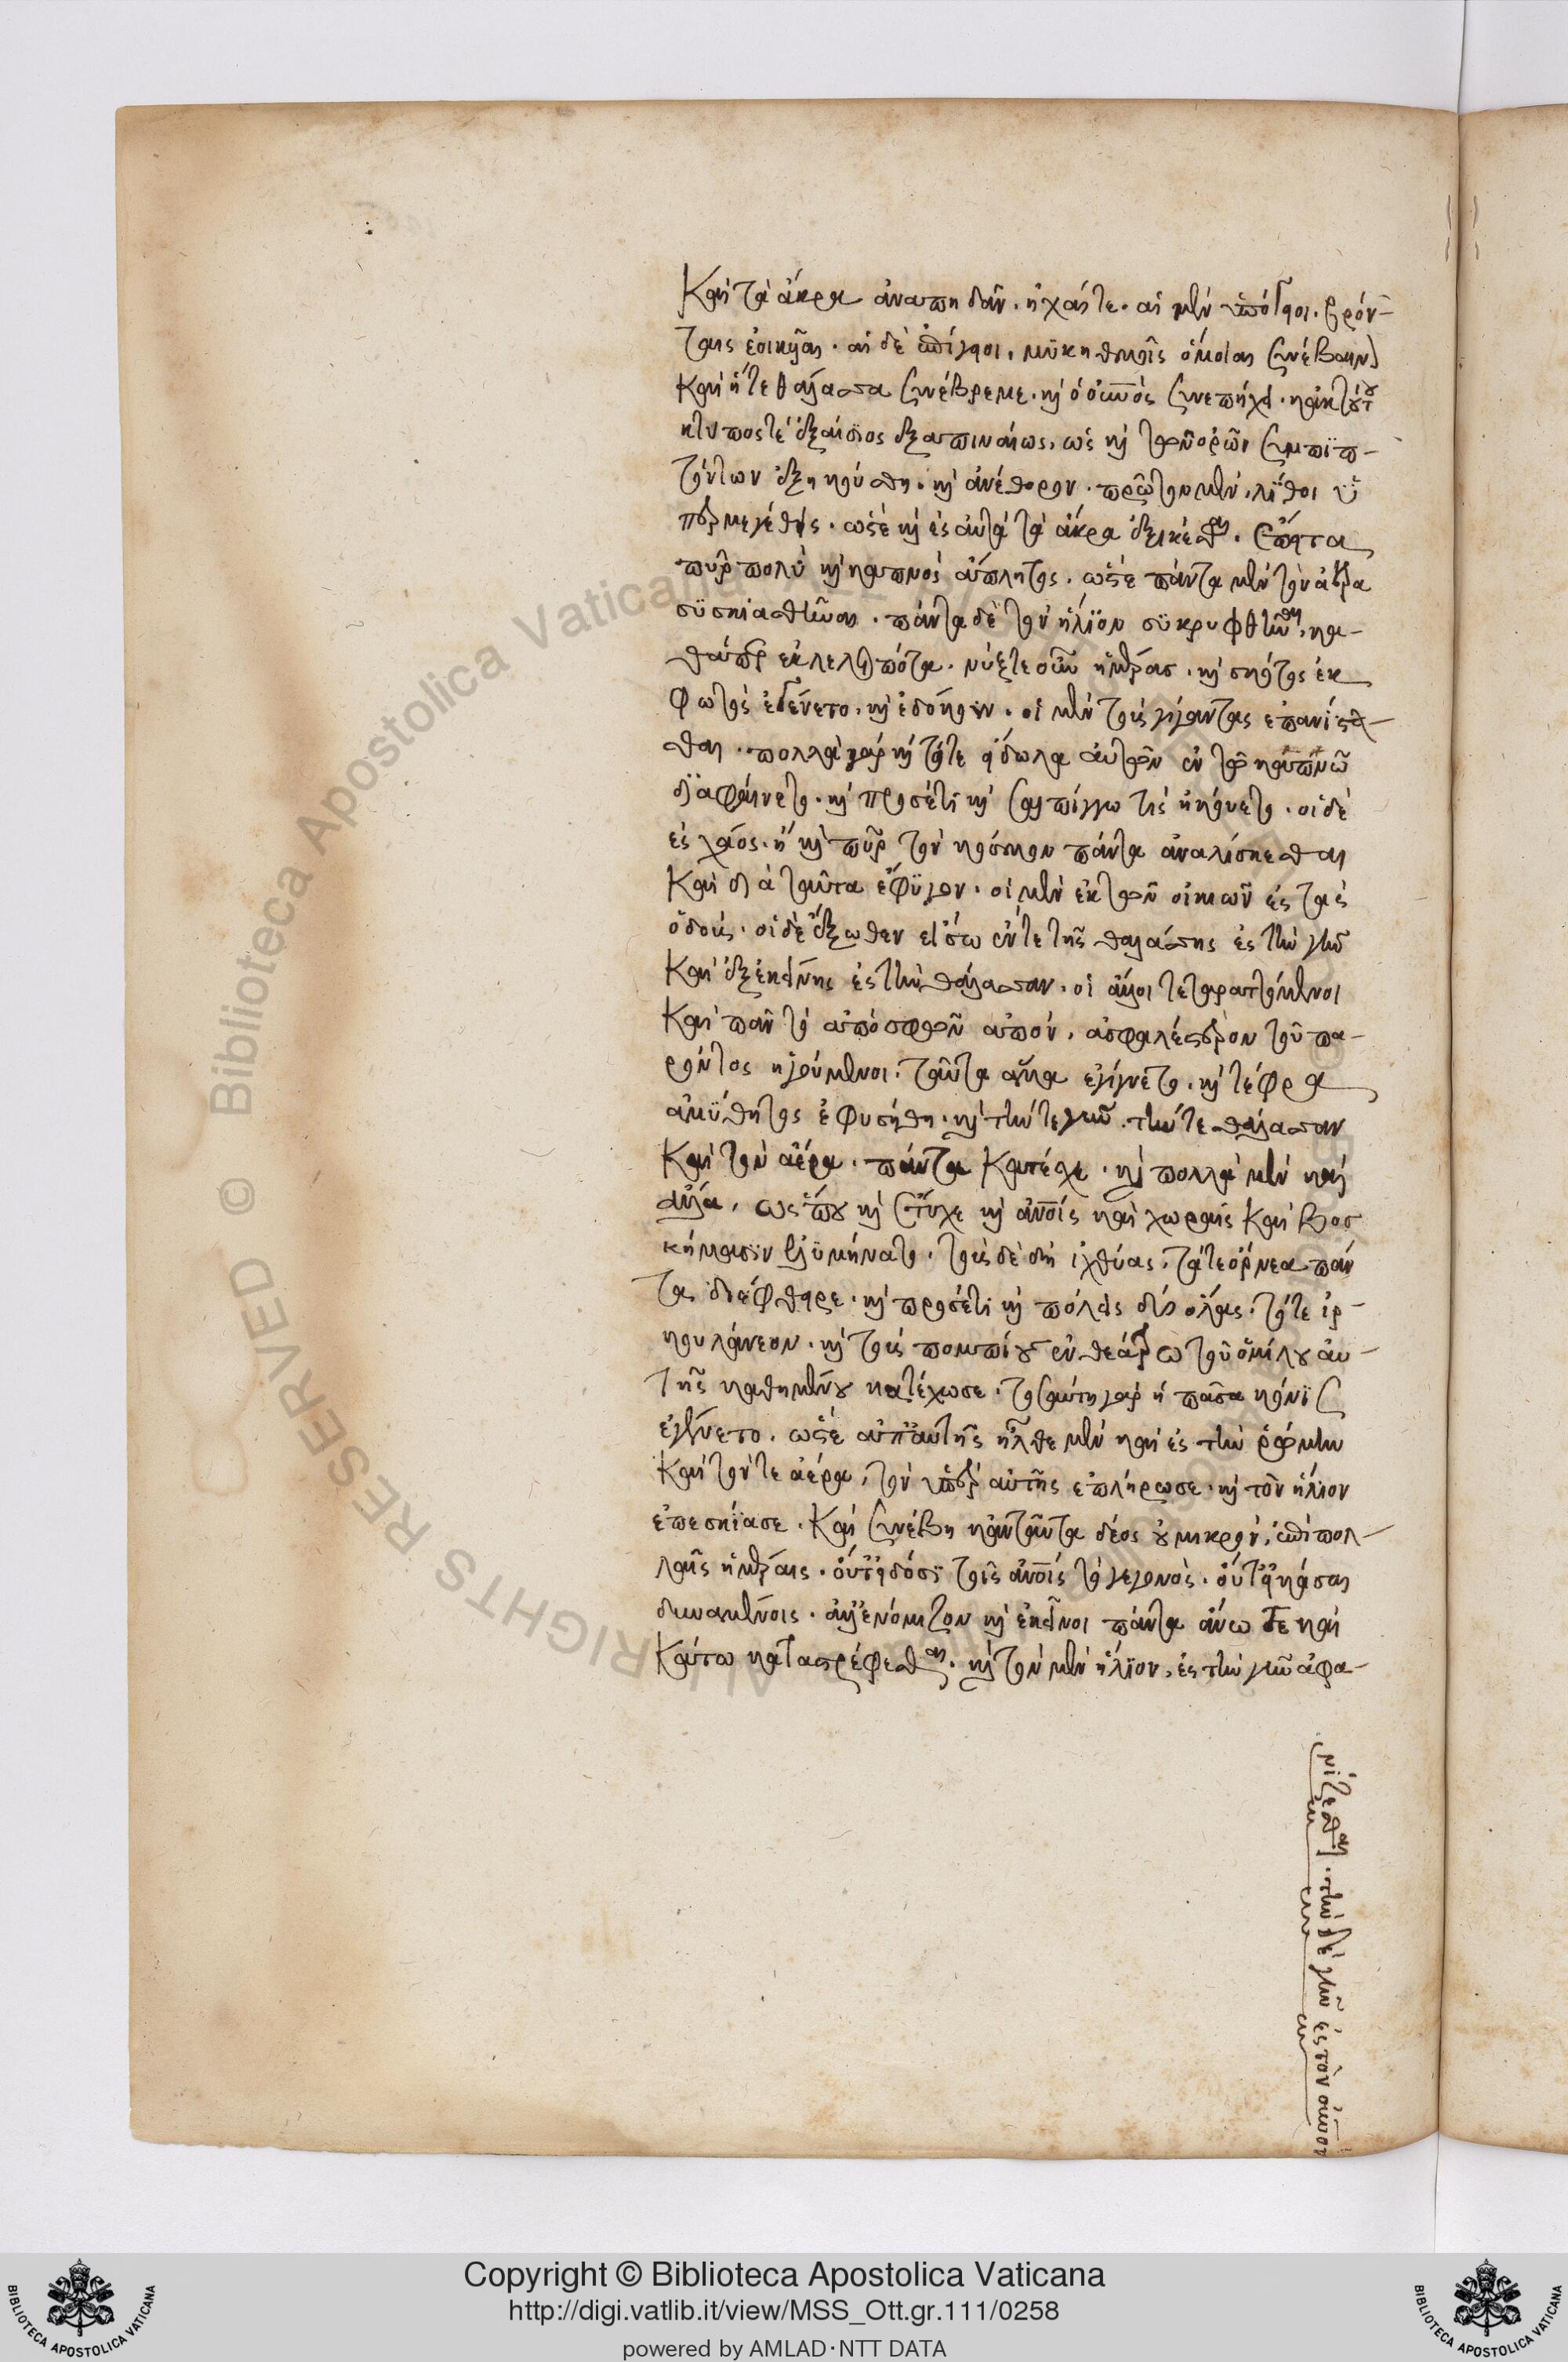 Καὶ τὰ ἄκρα ἀναπηδᾶν. ἠχαί τε. αἱ μὲν ὑπόγαιοι. βρον-
ταῖς ἐοικυῖαι. αἱ δὲ ἐπίγαιοι, μυκηθμοῖς ὅμοιαι συνέβαινον
Καὶ ἥ τε θάλασσα συνέβρεμε. κỳ ὁ οὐνὸς συνεπήχει. κἀκ τούτου
κτύπος τὲ ἐξαίσιος ἐξαπιναίως, ὡς κỳ τῶν ὀρῶν συμπιπ-
τόντων ἐξηκούσθη. κỳ ἀνέθορον. πρῶτον μὲν, λίθοι ὑ
περμεγέθεις. ὥστε κỳ ἐς αὐτὰ τὰ ἄκρα ἐξικέσθαι. ἔπειτα
πῦρ πολὺ κỳ καπνὸς ἄπλητος. ὥστε πάντα μὲν τὸν ἀέρα
συσκιασθῆναι. πάντα δὲ τὸν ἥλιον συκρυφθῆναι, κα-
θάπερ ἐκλελοιπότα. νύξ τε οὖν ἡμέρας. κỳ σκότος ἐκ
φωτὸς ἐγένετο. κỳ ἐδόκουν. οἱ μὲν τοὺς γίγαντας ἐπανίστα-
σθαι. πολλὰ γὰρ κỳ τότε εἴδωλα αὐτῶν ἐν τῶ καπνῶ
διαφαίνετο. κỳ προσέτι κỳ σαλπίγγω τὶς ἠκούετο. οἱ δὲ
ἐς χάος. ἢ κỳ πῦρ τὸν κόσμον πάντα ἀναλίσκεσθαι
Καὶ διὰ ταῦτα ἔφυγον. οἱ μὲν ἐκ τῶν οἰκιῶν ἐς τὰς
ὁδούς. οἱ δὲ ἔξωθεν εἴσω ἔν τε τῆς θαλάσσης ἐς τὴν γῆν
Καὶ ἐξ ἐκείνης ἐς τὴν θάλασσαν. οἱ ἄλλοι τε ταραττόμενοι
Καὶ πᾶν τὸ ἀπὸ σφῶν ἀπὸν, ἀσφαλέστερον τοῦ πα-
ρόντος ἡγούμενοι. ταῦτα ἅμα ἐγίγνετο. κỳ τέφρα
ἀμύθητος ἐφυσήθη. κỳ τήν τε γῆν. τήν τε θάλασσαν
Καὶ τὸν ἀέρα. πάντα κατέσχε. κỳ πολλὰ μὲν καὶ
ἄλλα, ὥς που κỳ ἔτυχε κỳ ἀνοῖς καὶ χώραις Καὶ βοσ
κήμασιν ἐλυμήνατο. τοὺς δὲ δὴ ἰχθύας, τά τε ὄρνεα πάν
τα διέφθειρε. κỳ προσέτι κỳ πόλεις δύο ὅλας. τό τε ἑρ-
κουλάνεον. κỳ τοὺς πομπίους ἐν θεάτρω τοῦ ὁμίλου αὐ-
τῆς καθημένου κατέχωσε. τοσαύτη γὰρ ἡ πᾶσα κόνις
ἐγένετο. ὥστε ἀπ' αὐτῆς ἦλθε μὲν καὶ ἐς τὴν ῥώμην
Καὶ τόν τε ἀέρα, τὸν ὑπὲρ αὐτῆς ἐπλήρωσε. κỳ τὸν ἥλιον
ἐπεσκίασε. Καὶ συνέβη κἀνταῦτα δέος οὐ μικρὸν, ἐπὶ πολ-
λαῖς ἡμέραις. οὔτ' εἰδόσι τοῖς ἀνοῖς τὸ γεγονὸς. οὔτ' εἰκάσαι
δυναμένοις. ἀλλ' ἐνόμιζον κỳ ἐκεῖνοι πάντα ἄνω τε καὶ
Κάτω καταστρέφεσθαι. κỳ τὸν μὲν ἥλιον, ἐς τὴν γῆν ἀφα-
νίζεσθαι. τὴν δὲ γῆν ἐς τὸν οὐνὸν
Copyright © Biblioteca Apostolica Vaticana
http://digi.vatlib.it/view/MSS_Ott.gr.111/0258
powered by AMLAD·NTT DATA